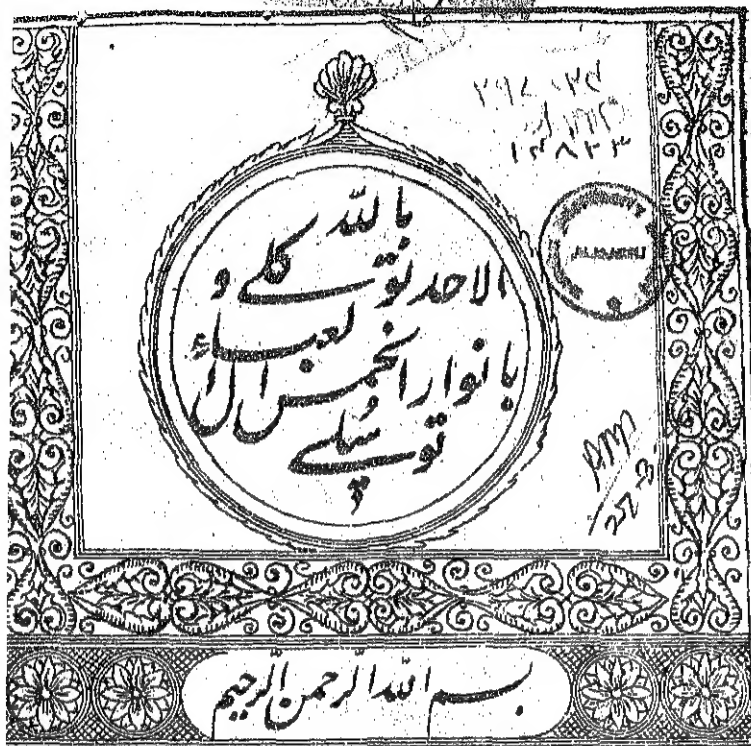 ۲۹۷.۰۲۴
۱۴۸۲۳
بالله
الاحد توکلی و
بانوار الخمس آل العباء
توسلی
بسم الله الرحمن الرحیم